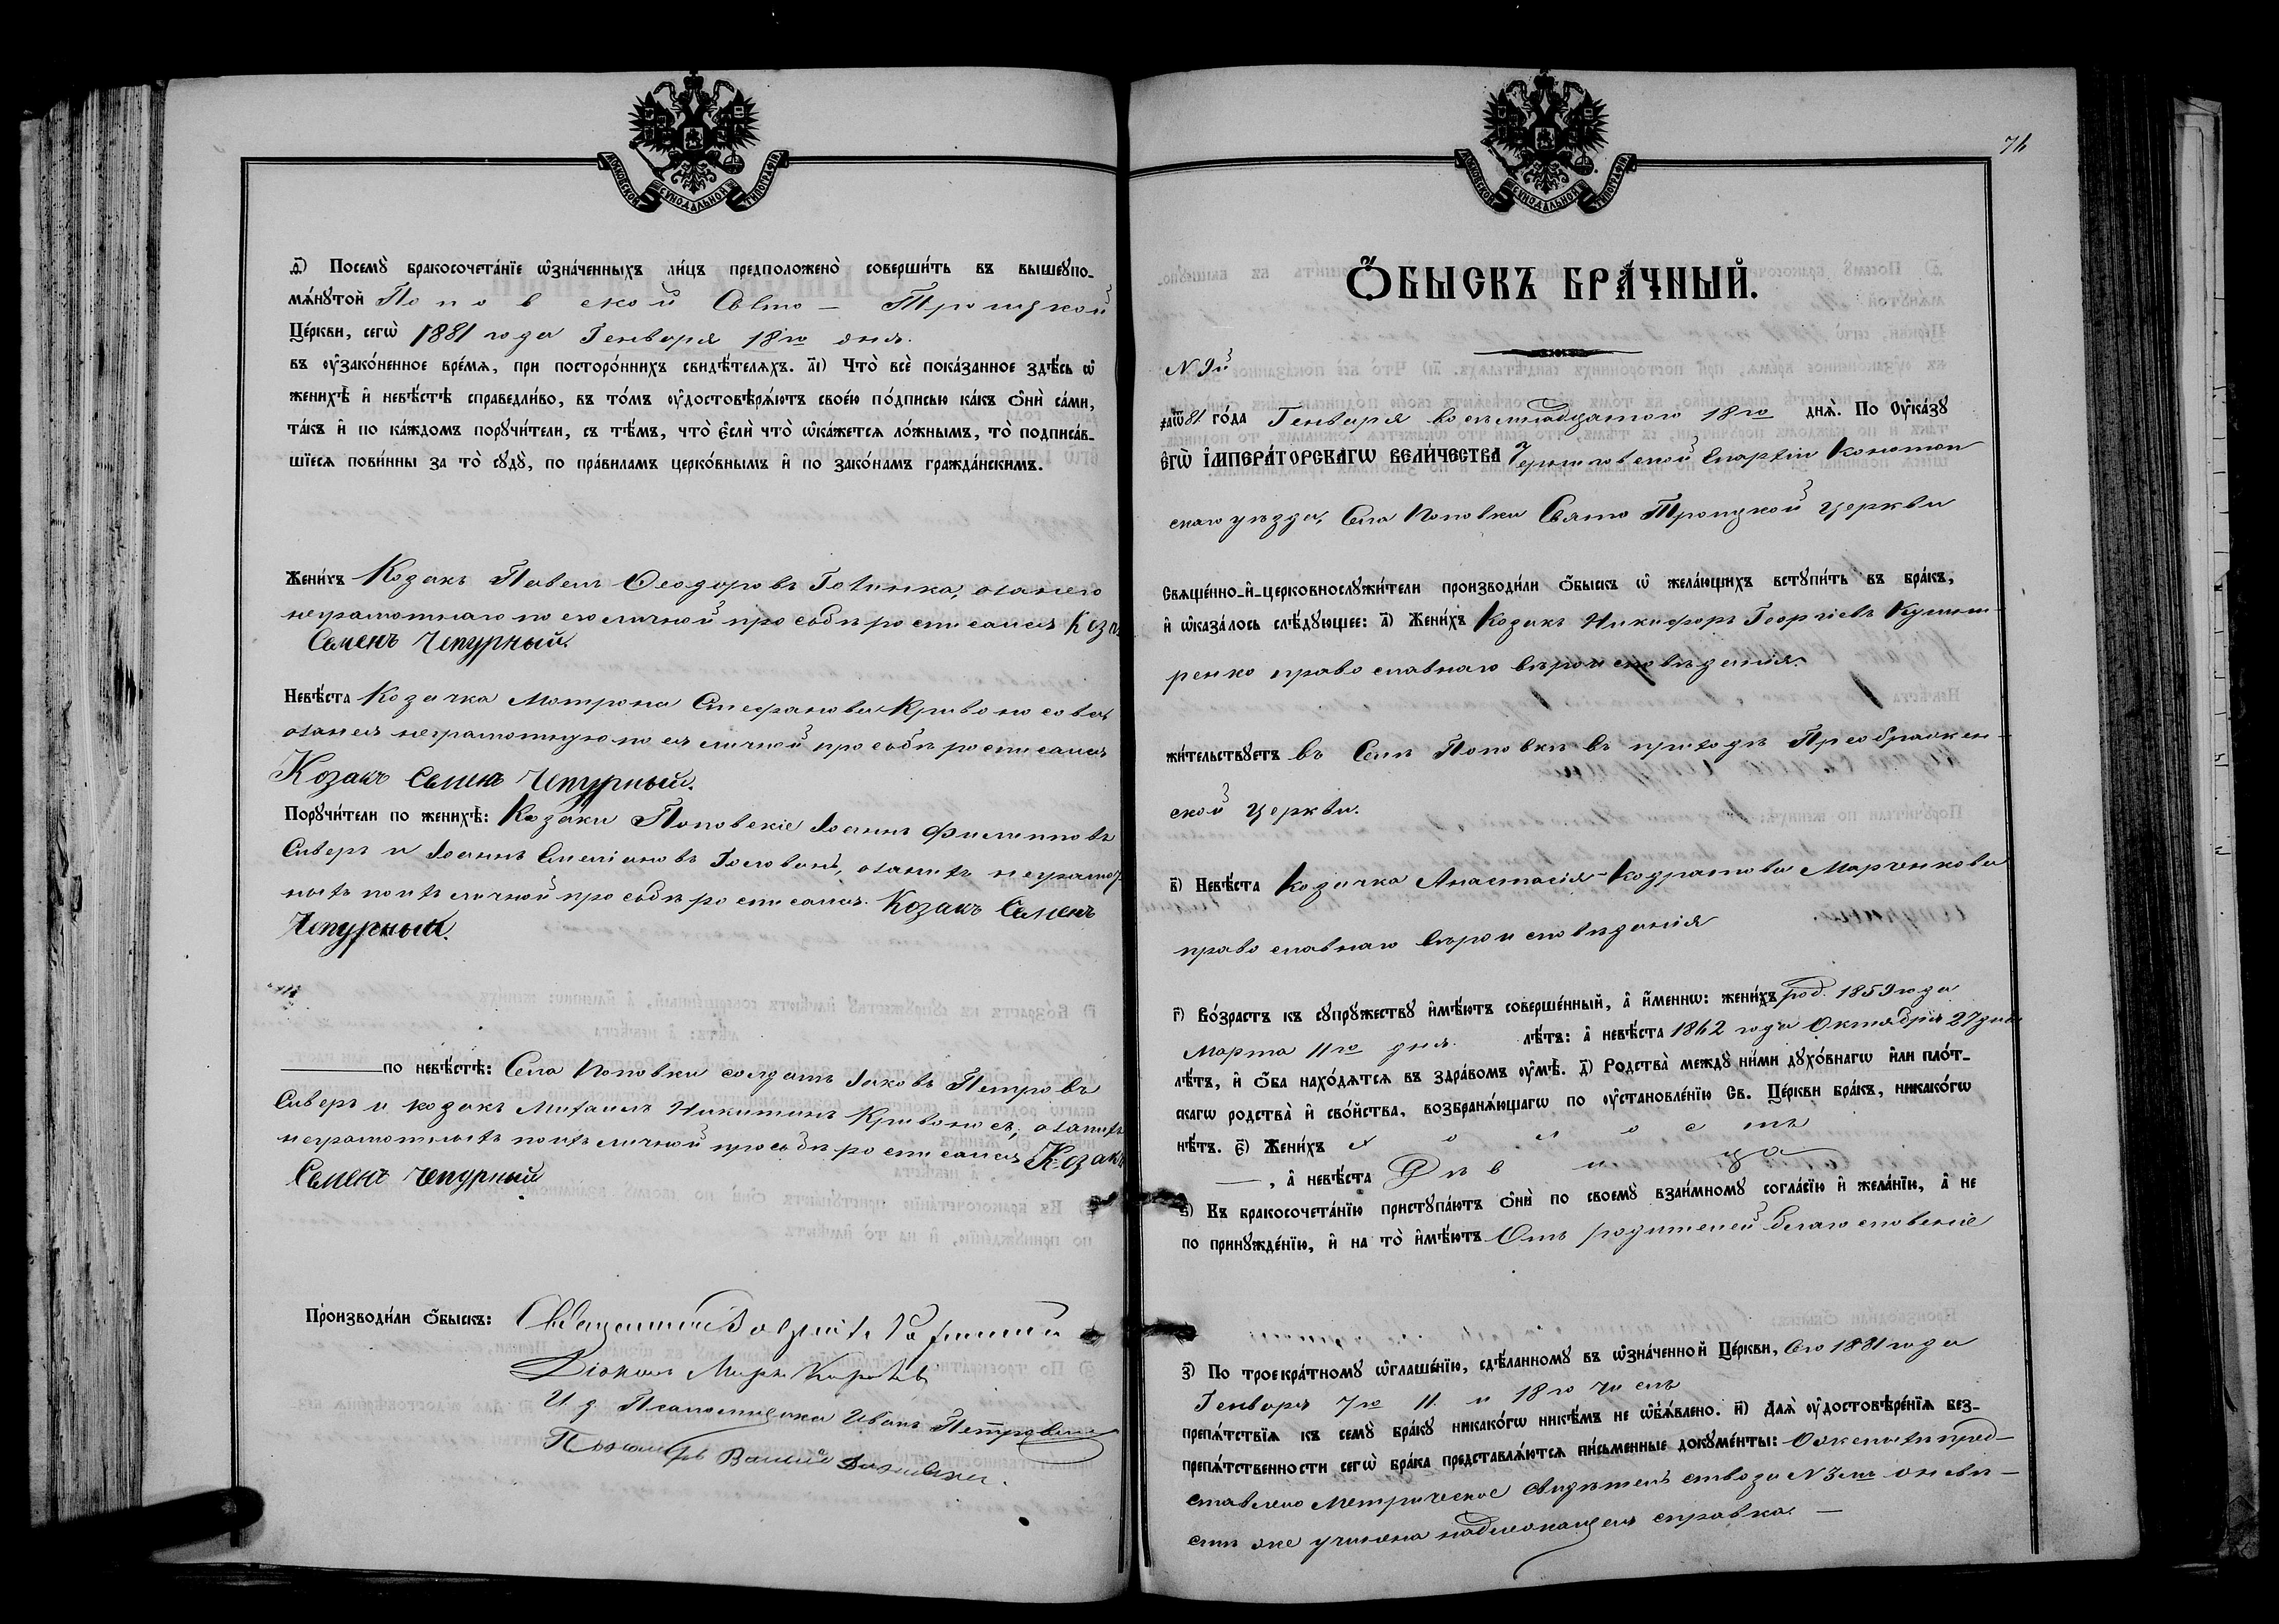 МОСКОВСКОЙ СѴНОДАЛЬНОЙ ТИПОГРАФІИ
і҃) Посемꙋ̀ бракосочета́нїе ѡ҆зна́ченныхъ ли́цъ предположено̀ соверши́ть въ вышеꙋпо-
мѧ́нꙋтой Поповской Свято-Троицкой
Це́ркви, сегѡ̀ 1881 года Генваря 18го дня.
въ ᲂу҆зако́ненное вре́мѧ, при посторо́ннихъ свидѣ́телѧхъ. а҃і) Что̀ всѐ пока́занное здѣ́сь ѡ҆
женихѣ̀ и҆ невѣ́стѣ справедли́во, въ то́мъ ᲂу҆достовѣрѧ́ютъ свое́ю по́дписью ка́къ ѻ҆нѝ са́ми,
та́къ и҆ по ка́ждомъ порꙋчи́тели, съ тѣ́мъ, что̀ є҆́сли что̀ ѡ҆ка́жетсѧ ло́жнымъ, то̀ подписа́в-
шїесѧ пови́нны за то̀ сꙋдꙋ̀, по пра́виламъ церко́внымъ и҆ по зако́намъ гражда́нскимъ.
Жени́хъ Козакъ Павелъ Ѳеодоровъ Готинка, азанего
неграмотнаго по его личной просьбѣ росписался Козакъ
Семенъ Чепурный.
Невѣ́ста Козачка Мотрона Стефанова Кривоносова
азанея неграмотную по ея личной просьбѣ росписался
Козакъ Семенъ Чепурный.
Порꙋчи́тели по женихѣ̀: Козаки Поповскіе Іоаннъ Филипповъ
Сиверъ и Іоаннъ Емеліановъ Головань, азанихъ неграмот-
ныхъ по ихъ личной просьбѣ росписался. Козакъ Семенъ
Чепурный.
по невѣ́стѣ: Села Поповки солдатъ Іаковъ Петровъ
Сиверъ и козакъ Михаилъ Никитинъ Кривоносъ, азанихъ
неграмотныхъ по ихъ личной просьбѣ росписался Козакъ
Семенъ Чепурный
Производи́ли ѻ҆́быскъ: Священникъ
Діаконъ
И. д. Псаломщика Иванъ Петровскій
Пономарь
МОСКОВСКОЙ СѴНОДАЛЬНОЙ ТИПОГРАФІИ
74
Ѻ҆́БЫСКЪ БРА́ЧНЫЙ.
N 9й
҂аѿ81 го́да Генваря восемнадцатаго 18го днѧ̀. По Оу҆ка́зꙋ
Є҆гѡ̀ І҆мпера́торскагѡ Вели́чества Черниговской Епархіи Конотоп
скаго уѣзда, Села Поповки Свято Троицкой церкви
Свѧще́нно-и҆-церковнослꙋжи́тели производи́ли ѻ҆́быскъ ѡ҆ жела́ющихъ встꙋпи́ть въ бра́къ,
и҆ ѡ҆каза́лось слѣ́дꙋющее: а҃) Жени́хъ Козакъ Никифоръ Георгіевъ Кушни-
ренко православнаго вѣроисповѣданія.
жи́тельствꙋетъ въ Селѣ Поповкѣ въ приходѣ Преображен-
ской церкви.
в҃) Невѣ́ста Козачка Анастасія Кодратова Марченкова
православнаго вѣроисповѣданія
г҃) Во́зрастъ къ сꙋпрꙋ́жествꙋ и҆мѣ́ютъ соверше́нный, а҆ и҆́меннѡ: жени́хъ род. 1859 года
Марта 11го дня. лѣ́тъ: а҆ невѣ́ста 1862 года Октября 27 дня
лѣ́тъ, и҆ ѻ҆́ба нахо́дѧтсѧ въ здра́вомъ ᲂу҆мѣ̀. д҃) Родства̀ междꙋ̀ ни́ми дꙋхо́внагѡ и҆́ли пло́т-
скагѡ родства̀ и҆ сво́йства, возбранѧ́ющагѡ по ᲂу҆становле́нїю Св. Це́ркви бра́къ, никако́гѡ
нѣ́тъ. є҃) Жени́хъ холостъ
, а҆ невѣ́ста Дѣвица
ѕ҃) Къ бракосочета́нїю пристꙋпа́ютъ ѻ҆нѝ по своемꙋ̀ взаи́мномꙋ согла́сїю и҆ жела́нїю, а҆ не
по принꙋжде́нїю, и҆ на то̀ и҆мѣ́ютъ Отъ родителей благословеніе
з҃) По троекра́тномꙋ ѡ҆глаше́нїю, сдѣ́ланномꙋ въ ѡ҆зна́ченной Це́ркви, Сего 1881 года
Генваря 7го 11. и 18го числъ
препѧ́тствїѧ къ семꙋ̀ бра́кꙋ никако́гѡ никѣ́мъ не ѡ҆б̾ѧ́влено. и҃) Длѧ̀ ᲂу҆достовѣре́нїѧ без-
препѧ́тственности сегѡ̀ бра́ка представлѧ́ютсѧ пи́сьменные докꙋме́нты: О женихѣ пред-
ставлено Метрическое свидѣтельство за N 3мъ о невѣ-
стѣ же учинена надлежащая справка. —